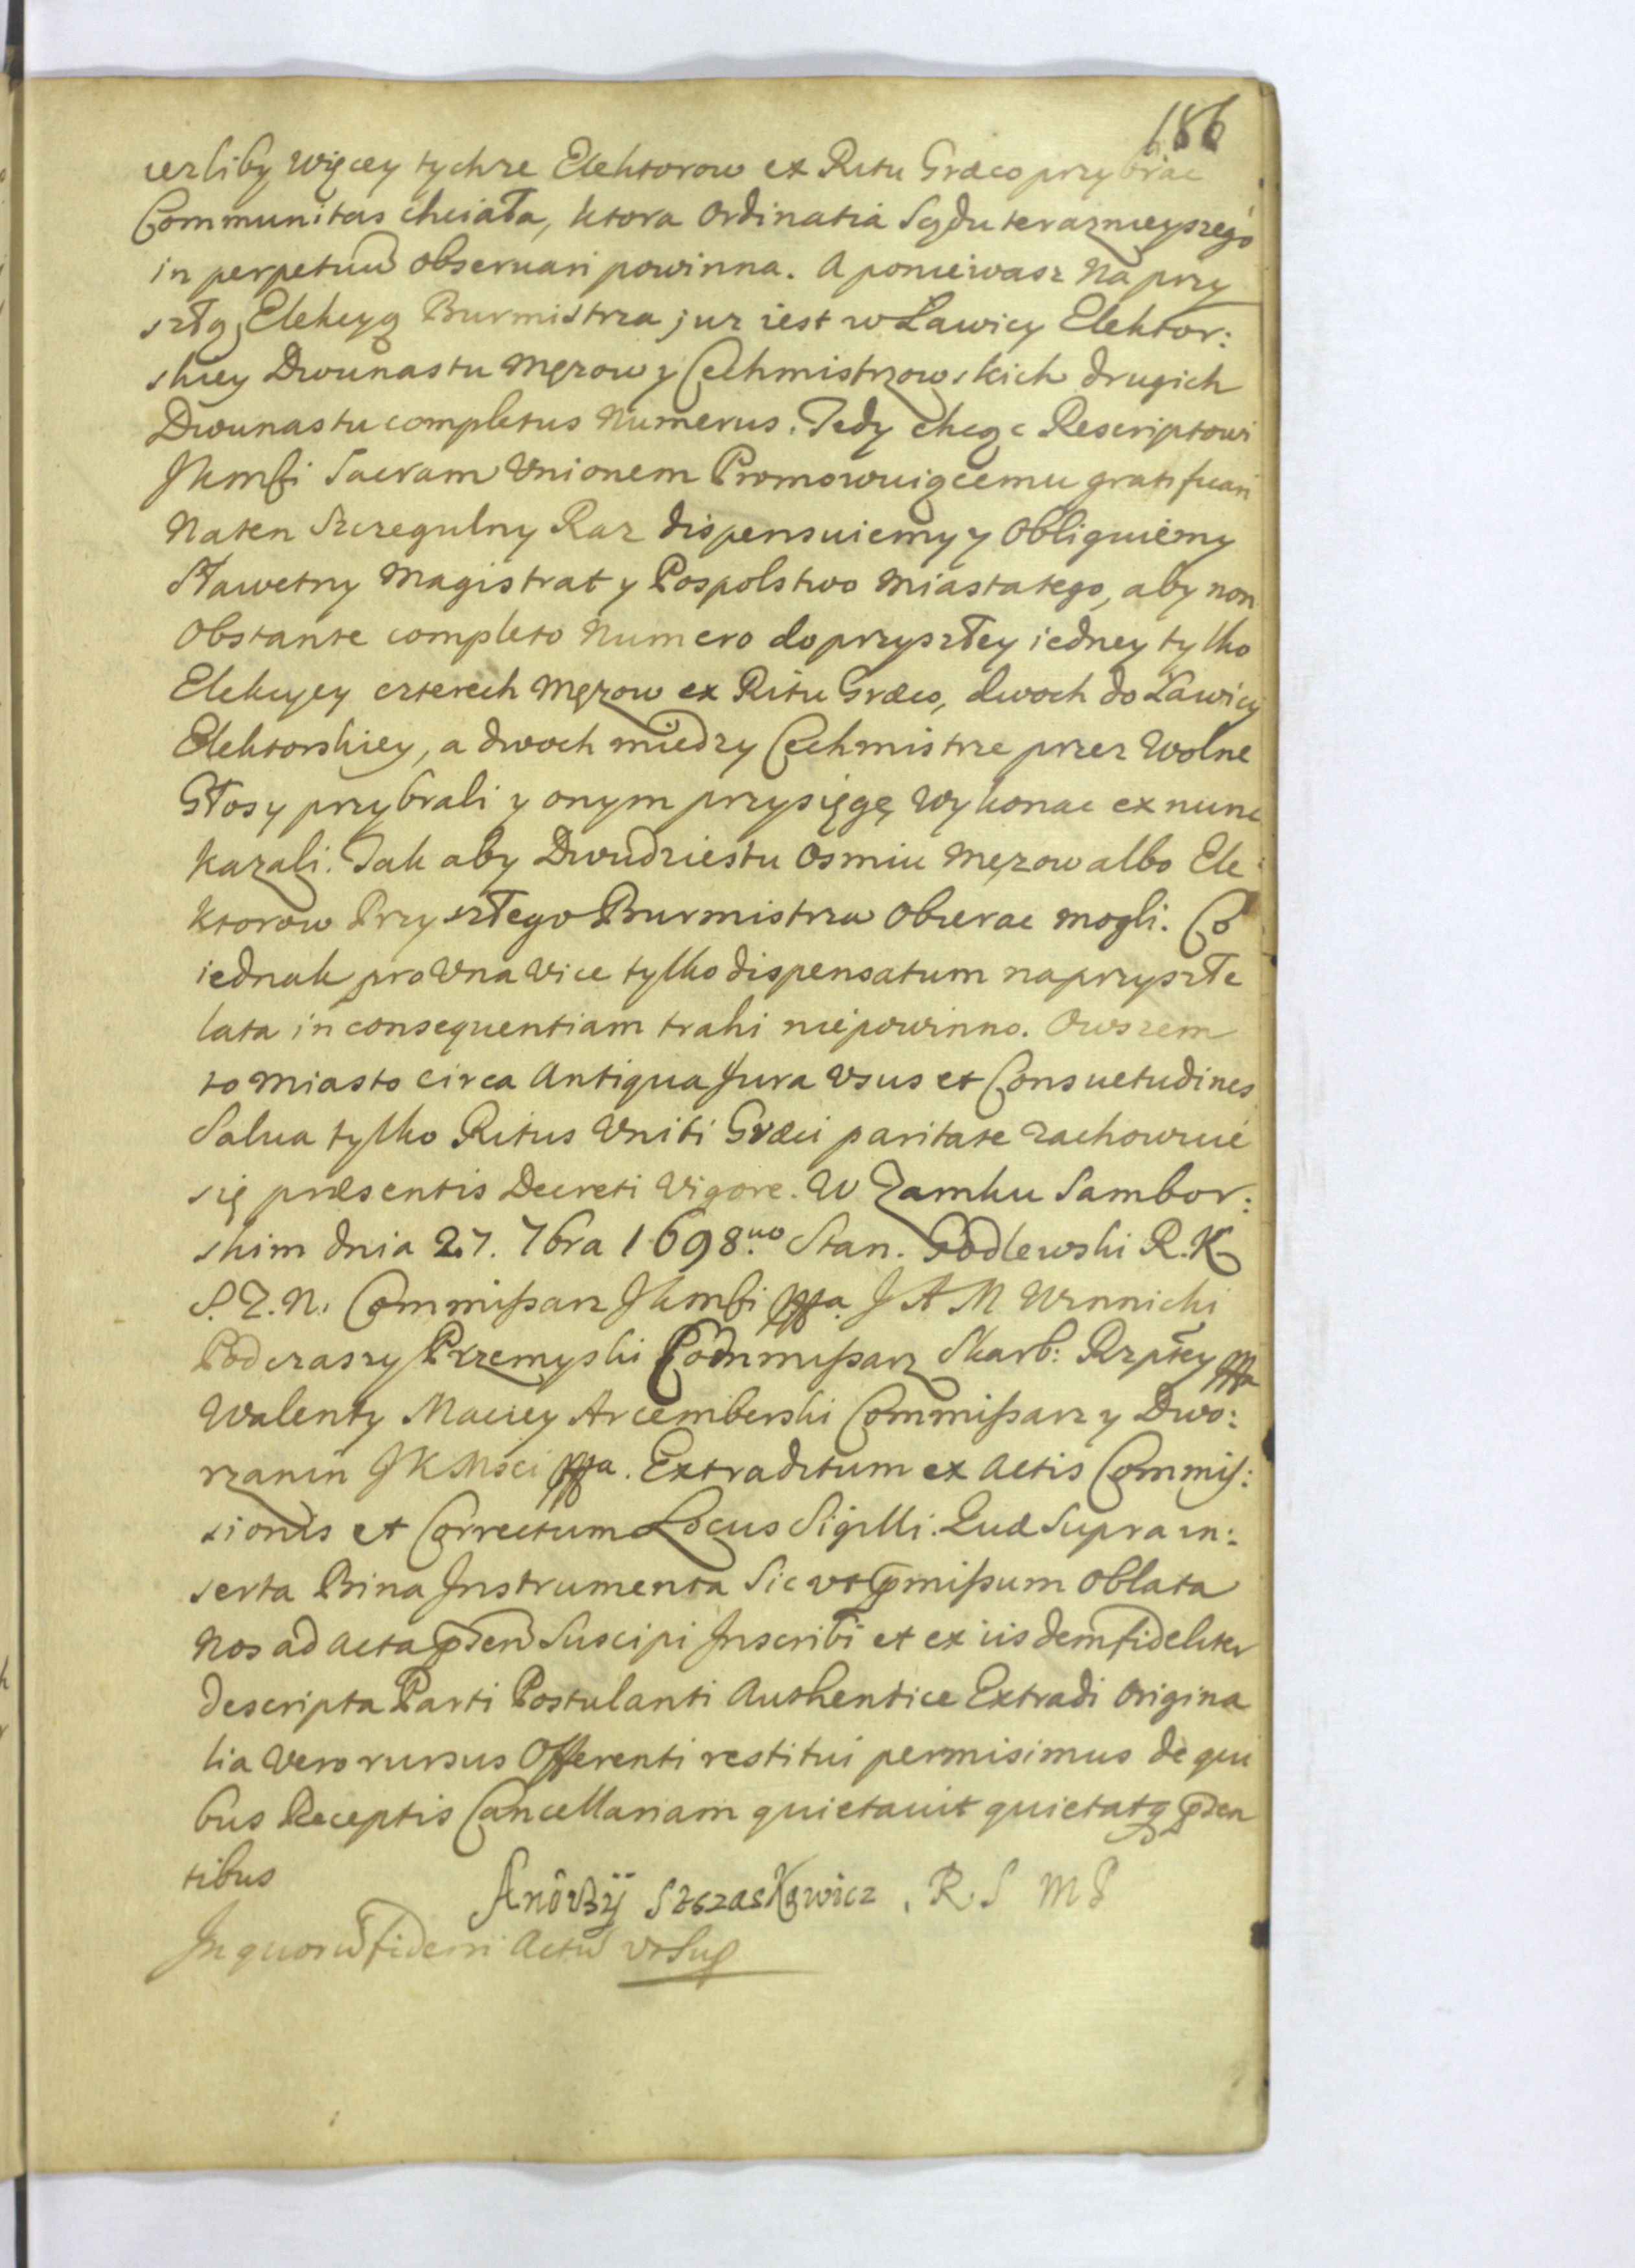 186
ieżliby więcey tychże Elektorow ex Ritu Græco przybrac
Communitas chciała, ktora Ordinatia Sądu teraznieyszego
in perpetuũ observari powinna. A poniewasz na przy
szłą Elekcyą Burmistrza juz iest w Ławicy Elektor:
skiey Dwunastu Męzow y Cechmistrzowskich drugich
Dwunastu completus Numerus. Tedy chcąc Rescriptowi
JKmści Sacram Unionem Promowuiącemu gratificari
Naten Szczegulny Raz dispensuiemy y Obliguiemy
Sławetny Magistrat y Pospolstwo Miasta tego, aby non
Obstante completo Numero do przyszłey iedney tylko
Elekcyey czterech Męzow ex Ritu Græco, dwoch do Ławicy
Elektorskiey, a dwoch miedzy Cechmistrze przez Wolne
Głosy przybrali y onym przysięgę Wykonac ex nunc
kazali. Tak aby Dwudziestu Osmiu Męzow albo Ele:
ktorow Przyszłego Burmistrza Obierac mogli. Co
iednak pro Una Vice tylko dispensatum na przyszłe
lata in consequentiam trahi niepowinno. Owszem
to Miasto circa Antiqua Jura Usus et Consuetudines
Salua tylko Ritus Uniti Græci paritate zachowuie
się præsentis Decreti Vigore. W Zamku Sambor:
skim dnia 27. 7bra 1698.uo Stan. Godlewski R.K
S.Z.N. Commissarz JKmści mpp. J A M Winnicki
Podczaszy Przemyski Commissarz Skarb: Rzptey mpp
Walenty Maciey Arcemberski Commissarz y Dwo:
rzanin JKMsci mpp. Extraditum ex Actis Commis:
sionis et Correctum Locus Sigilli. Quæ Supra in:
serta Bina Instrumenta Sic ut p̃missum Oblata
Nos ad Acta p̃sen̄ Suscipi Inscribi et ex iisdem fideliter
descripta Parti Postulanti Authentice Extradi Origina
lia Vero rursus Offerenti restitui permisimus de qui
bus Receptis Cancellariam quietauit quietatq p̃sen
tibus
Andrzÿ Stszaskowicz . R. S M P
In quorũ fidem Actũ ut Sup